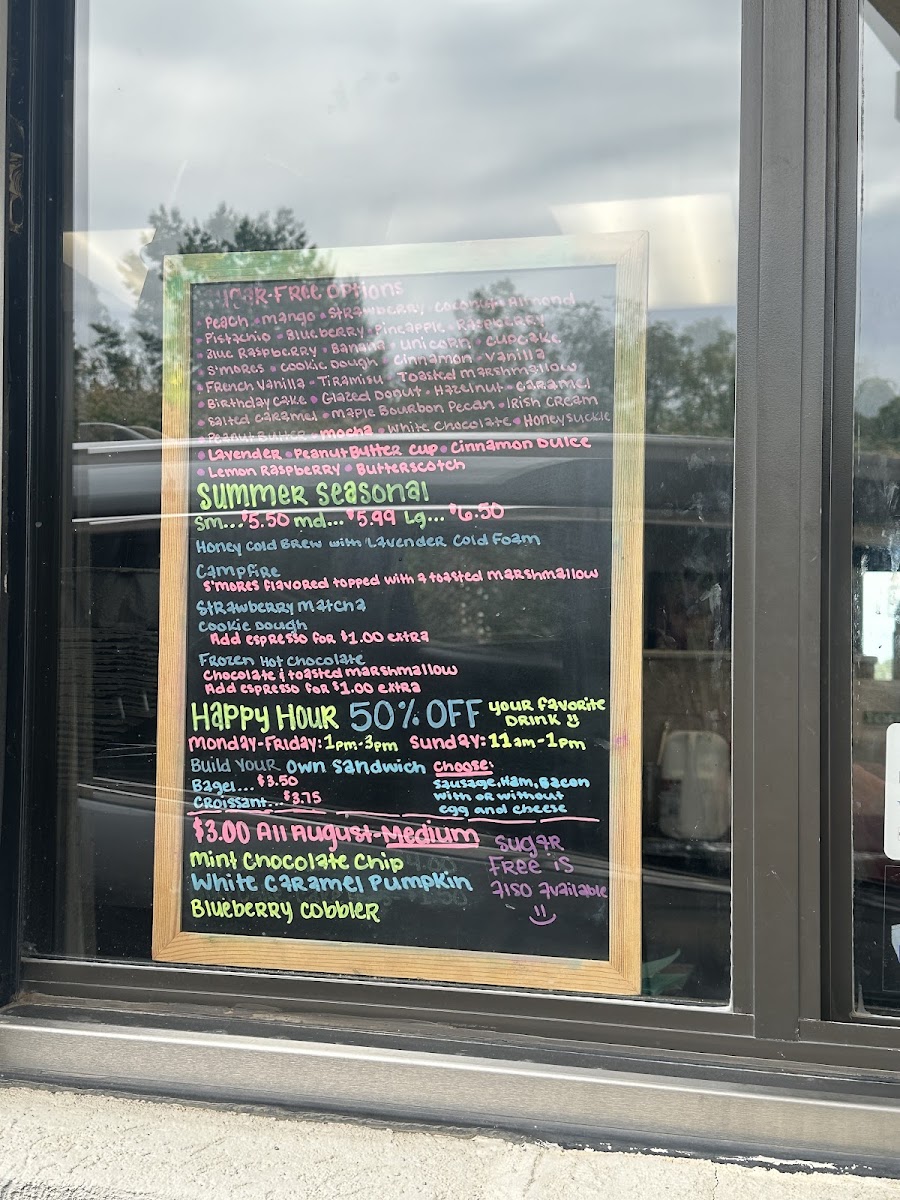 -Free Options
• Peach • mango • Strawberry • coconut • Almond
• Pistachio • Blueberry • Pineapple • Raspberry
• Blue Raspberry • Banana • unicorn • cupcake
• S'mores • cookie Dough • cinnamon • vanilla
• French vanilla • Tiramisu • Toasted marshmallow
• Birthday cake • Glazed Donut • Hazelnut • caramel
• Salted caramel • maple Bourbon Pecan • Irish cream
• Peanut Butter • mocha • White Chocolate • Honeysuckle
• Lavender • Peanut Butter cup • Cinnamon Dulce
• Lemon Raspberry • Butterscotch
Summer Seasonal
Sm...$5.50 md...$5.99 Lg...$6.50
Honey Cold Brew with Lavender Cold Foam
Campfire
S'mores flavored topped with a toasted marshmallow
Strawberry Matcha
Cookie Dough
Add espresso for $1.00 extra
Frozen Hot Chocolate
Chocolate & toasted marshmallow
Add espresso for $1.00 extra
Happy Hour 50% OFF your favorite
DRINK
Monday-Friday: 1pm-3pm Sunday: 11am-1pm
Build your own sandwich choose:
Bagel...$3.50
Croissant...$3.75
Sausage, Ham, Bacon
with or without
egg and cheese
$3.00 All August-Medium
Mint Chocolate Chip
White Caramel Pumpkin
Blueberry Cobbler
Sugar
Free is
Also Available